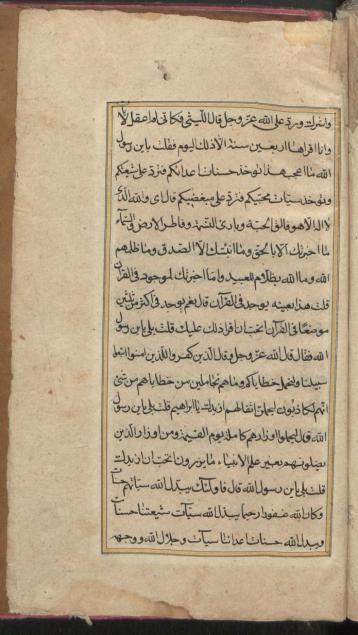 واشرك وردّ على الله عزّ وجل قال الليثى فكانى لم اعقل الا
وانا اقراها اربعين سنة الا ذلك اليوم فقلت يابن رسول
الله ما اعجب هذا تؤخذ حسنات اعدائكم فتردّ على شيعتكم
وتؤخذ سيّات محبّيكم فتردّ على مبغضيكم قال اى والله الذى
لا اله الا هو فالق الحبّة وبارئ النّسمة وفاطر الارض والسّماء
ما اخبرتك الا بالحق وما انبئتك الا الصدق وما ظلمهم
الله وما الله بظلّام للعبيد وامّا اخبرتك لموجود فى القران
قلت هذا بعينه يوجد فى القرآن قال نعم يوجد فى اكثر من ثلثين
موضعًا فى القرآن تحبّ ان اقرا ذلك عليك قلت بلى يابن رسول
الله فقال قال الله عزّ وجل وقال الذين كفروا للذين امنوا اتبعوا
سبيلنا ولنحمل خطاياكم وما هم بحاملين من خطاياهم من شئ
انّهم لكاذبون ليحملن اثقالهم ازيدك يا ابراهيم قلت بلى يابن رسول
الله قال ليحملوا اوزارهم كاملة يوم القيمة ومن اوزار الذين
يضلونهم بغير علم الا ساء ما يزرون تحبّ ان ازيدك
قلت بلى يابن رسول الله قال فاولئك يبدّل الله سيّاتهم حسنات
وكان الله غفورا رحيما يبدّل الله سيّآت شيعتنا حسنات
ويبدّل الله حسنات اعدائنا سيآت وجلال الله ووجهه